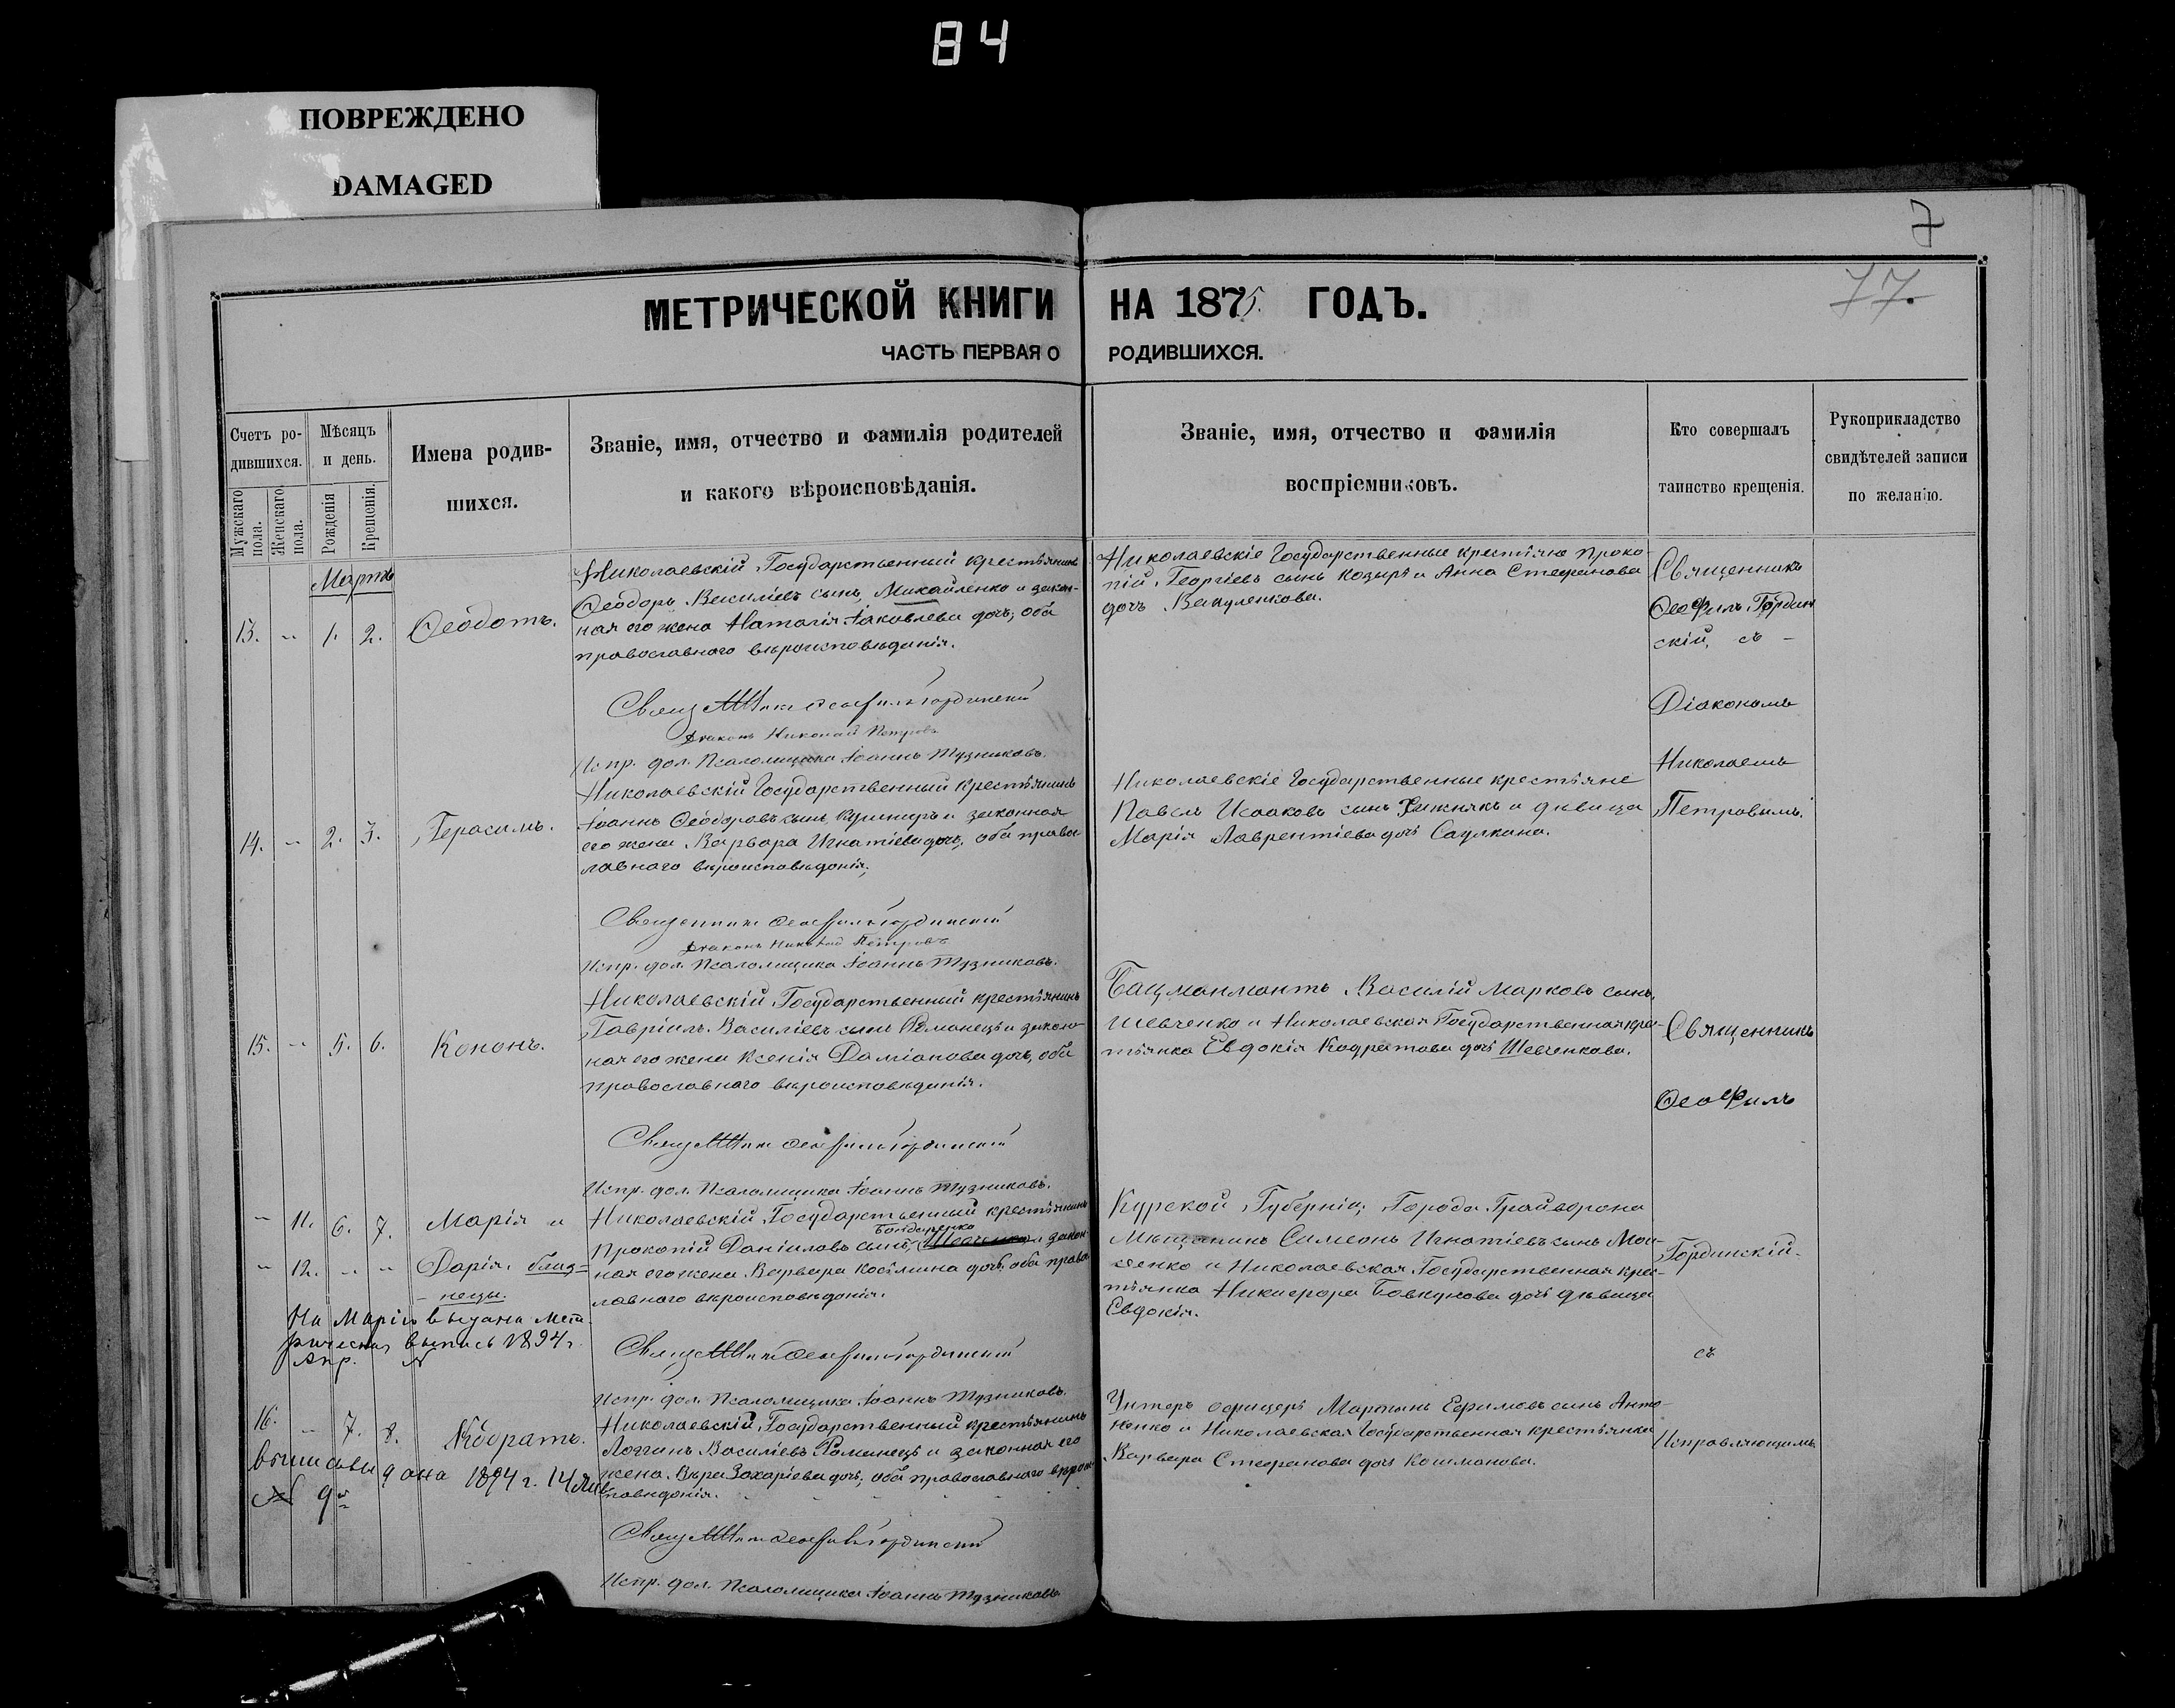 84
ПОВРЕЖДЕНО
DAMAGED
7
77.
МЕТРИЧЕСКОЙ КНИГИ НА 1875 ГОДЪ.
ЧАСТЬ ПЕРВАЯ О РОДИВШИХСЯ.
Счетъ ро-
дившихся.
Мужскаго пола.
Женскаго пола.
Мѣсяцъ
и день.
Рожденія
Крещенія.
Имена родив-
шихся.
Званіе, имя, отчество и фамилія родителей
и какого вѣроисповѣданія.
Званіе, имя, отчество и фамилія
воспріемниковъ.
Кто совершалъ
таинство крещенія.
Рукоприкладство
свидѣтелей записи
по желанію.
Мартъ
13. " 1. 2. Ѳеодотъ.
Николаевскій Государственный крестьянинъ
Ѳеодоръ Василіевъ сынъ, Михайленко и закон-
ная его жена Наталія Іаковлева дочь, оба
православнаго вѣроисповѣданія.
Николаевскіе Государственные крестьяне Проко-
пій Георгіевъ сынъ Козырь и Анна Стефанова
дочь Вакуленкова.
Священникъ
Ѳеофилъ Гордин
скій, съ -
Діакономъ
Николаемъ
Петровымъ.
Ѳеофилъ Гординскій
Діаконъ Николай Петровъ
Испр. дол. Псаломщика Іоаннъ Тузниковъ.
14. " 2. 3. Герасимъ.
Николаевскій Государственный крестьянинъ
Іоаннъ Ѳеодоровъ сынъ и законная
его жена Варвара Игнатіева дочь, оба правос-
лавнаго вѣроисповѣданія,
Николаевскіе Государственные крестьяне
Павелъ Исааковъ сынъ и дѣвица
Марія Лаврентіева дочь Саулкина.
Священникъ Ѳеофилъ Гординскій
Діаконъ Николай Петровъ
Испр. дол. Псаломщика Іоаннъ Тузниковъ.
15. " 5. 6. Кононъ.
Николаевскій Государственный крестьянинъ
Гавріилъ Василіевъ сынъ Романецъ и закон-
ная его жена Ксенія Даміанова дочь, оба
православнаго вѣроисповѣданія.
Бацманматъ Василій Марковъ сынъ,
Шевченко и Николаевская Государственная крес-
тьянка Евдокія Кодратова дочь Шевченкова.
Священникъ
Ѳеофилъ
Гординскій
съ
Исправляющимъ
Ѳеофилъ Гординскій
Испр. дол. Псаломщика Іоаннъ Тузниковъ.
" 11. 6. 7. Марія и
" 12. " " Дарія близ-
нецы.
Николаевскій Государственный крестьянинъ
Бондаренко
Прокопій Даніиловъ сынъ, и закон-
ная его жена Варвара Косьмина дочь, оба право
лавнаго вѣроисповѣданія.
Курской Губерніи, Города Грайворона
Мѣщанинъ Симеонъ Игнатіевъ сынъ
и Николаевская Государственная крес-
тьянка Никифора дочь дѣвица
Евдокія.
На Марію выдана мет-
рическая выпись 1894 г.
Апр. №
Ѳеофилъ Гординскій
Испр. дол. Псаломщика Іоаннъ Тузниковъ.
16. " 7. 8. Кодратъ.
Николаевскій Государственный крестьянинъ
Логгинъ Василіевъ Романецъ и законная его
жена Вѣра Захаріева дочь, оба православнаго вѣроис
повѣданія.
Унтеръ офицеръ Мартынъ Ефимовъ сынъ Анто-
ненко и Николаевская Государственная крестьянка
Варвара Стефанова дочь Кошманова.
дана 1894 г. 14
№ 9
Ѳеофилъ Гординскій
Испр. дол. Псаломщика Іоаннъ Тузниковъ